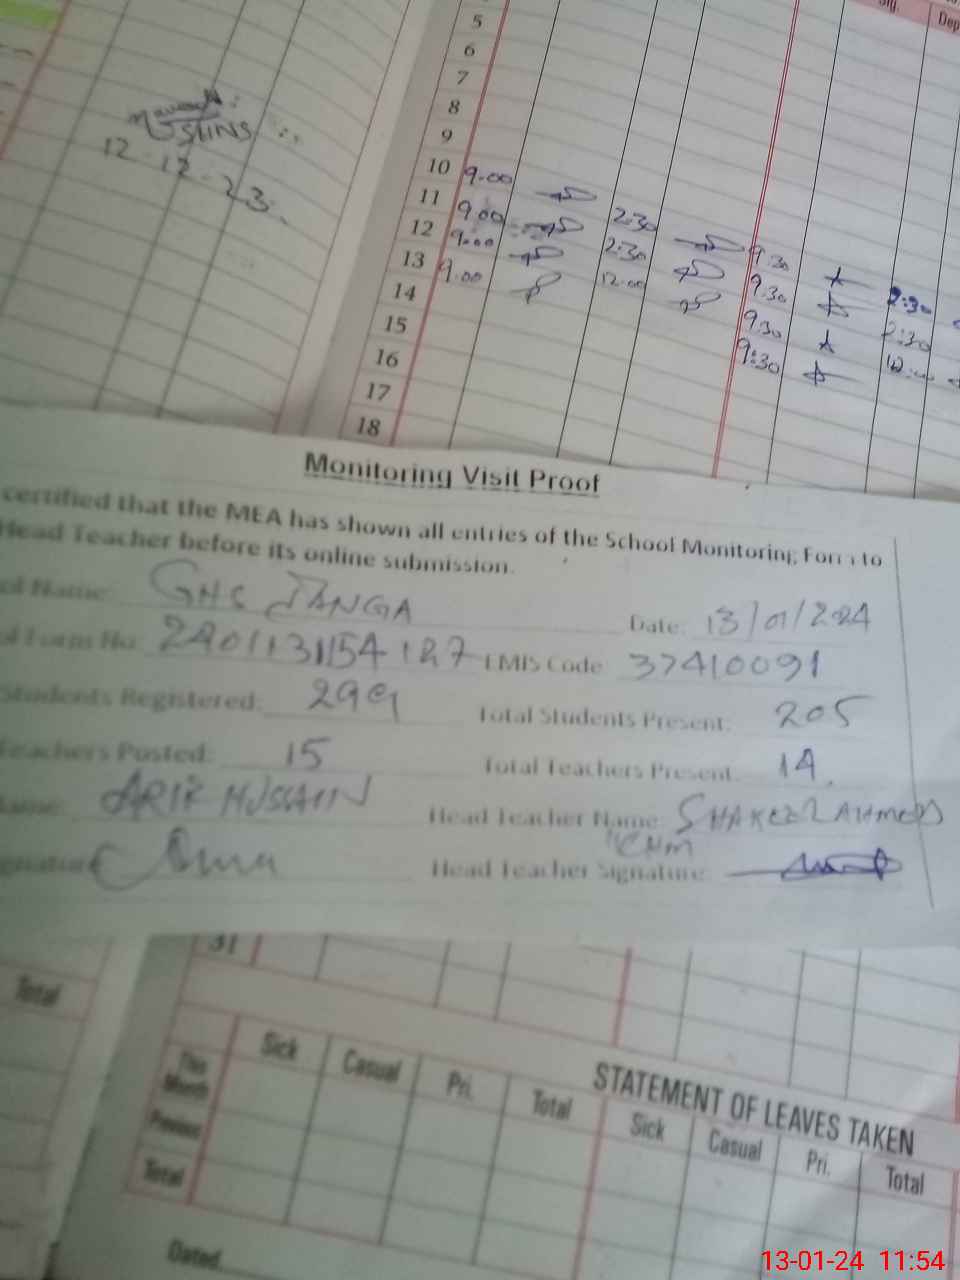 Sig.
Dep
5
6
7
8
9
10 9.00 2:30 9.30 2:30
11 9.00 2:30 9.30 2:30
12 9.00 12.00 9.30 12:00
13 9.00 9:30
14
15
16
17
18
12-12-23
Monitoring Visit Proof
certified that the MEA has shown all entries of the School Monitoring Form to
Head Teacher before its online submission.
ol Name: GHS JANGA Date: 13/01/2024
ol Form No: EMIS Code 37410091
Students Registered: 299 Total Students Present: 205
Teachers Posted: 15 Total Teachers Present: 14
ame: ARIF HUSSAIN Head Teacher Name: SHAKEEL AHMED
gnature Head Teacher Signature:
31
Total
STATEMENT OF LEAVES TAKEN
Sick Casual Pri. Total Sick Casual Pri. Total
This Month
Previous
Total
Dated
13-01-24 11:54